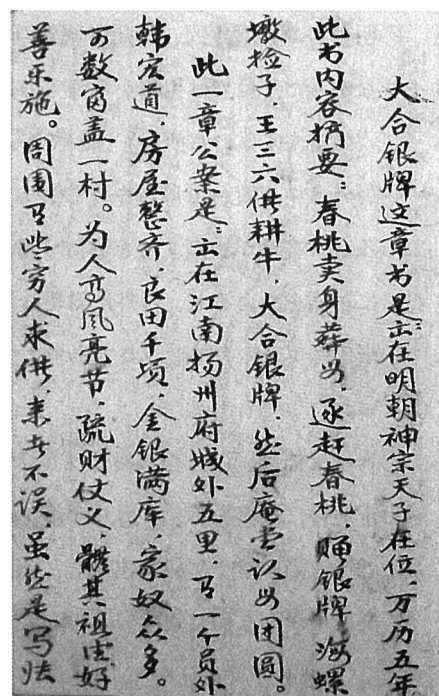 大合银牌这章书是:出在明朝神宗天子在位,万历五年
此书内容摘要:春桃卖身葬母,逐赶春桃,赠银牌,海螺
墩捡子,王三六借耕牛,大合银牌,然后庵堂认母团圆。
此一章公案是:出在江南扬州府城外五里,有一个员外
韩宏道,房屋整齐,良田千顷,金银满库,家奴众多。
可数富盖一村。为人高风亮节,疏财仗义,體其祖好
善乐施。周围有些穷人求借,来者不误,虽然是写法